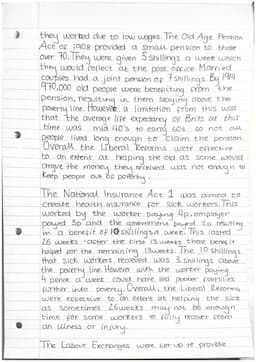 they worked due to low wages. The Old Age Pension
Act of 1908 provided a small pension to those
over 70. They were given 5 shillings a week which
they would collect at the post office. Married
couples had a joint pension of 7 shillings. By 1914
970,000 old people were benefiting from the
pension, resulting in them staying above the
poverty line. However a limitation from this was
that the average life expectancy of Brits at this
time was mid 40's to early 50s so not all
people lived long enough to claim the pension.
Overall the Liberal Reforms were effective
to an extent at helping the old as some would
argue the money they received was not enough to
keep people out of poverty.
The National Insurance Act 1 was aimed to
create health insurance for sick workers. This
worked by the worker paying 4p, employer
payed 3p and the government payed 2p resulting
in a benefit of 10 shillings a week. This lasted
26 weeks after the first 13 weeks their benefit
halved for the remaining 13 weeks. The 10 shillings
that sick workers received was 3 shillings above
the poverty line. However with the worker paying
4 pence a week could have led poorer families
further into poverty. Overall, the Liberal Reforms
were effective to an extent at helping the sick
as sometimes 26 weeks may not be enough
time for some workers to fully recover from
an illness or injury.
The Labour Exchanges were set up to provide